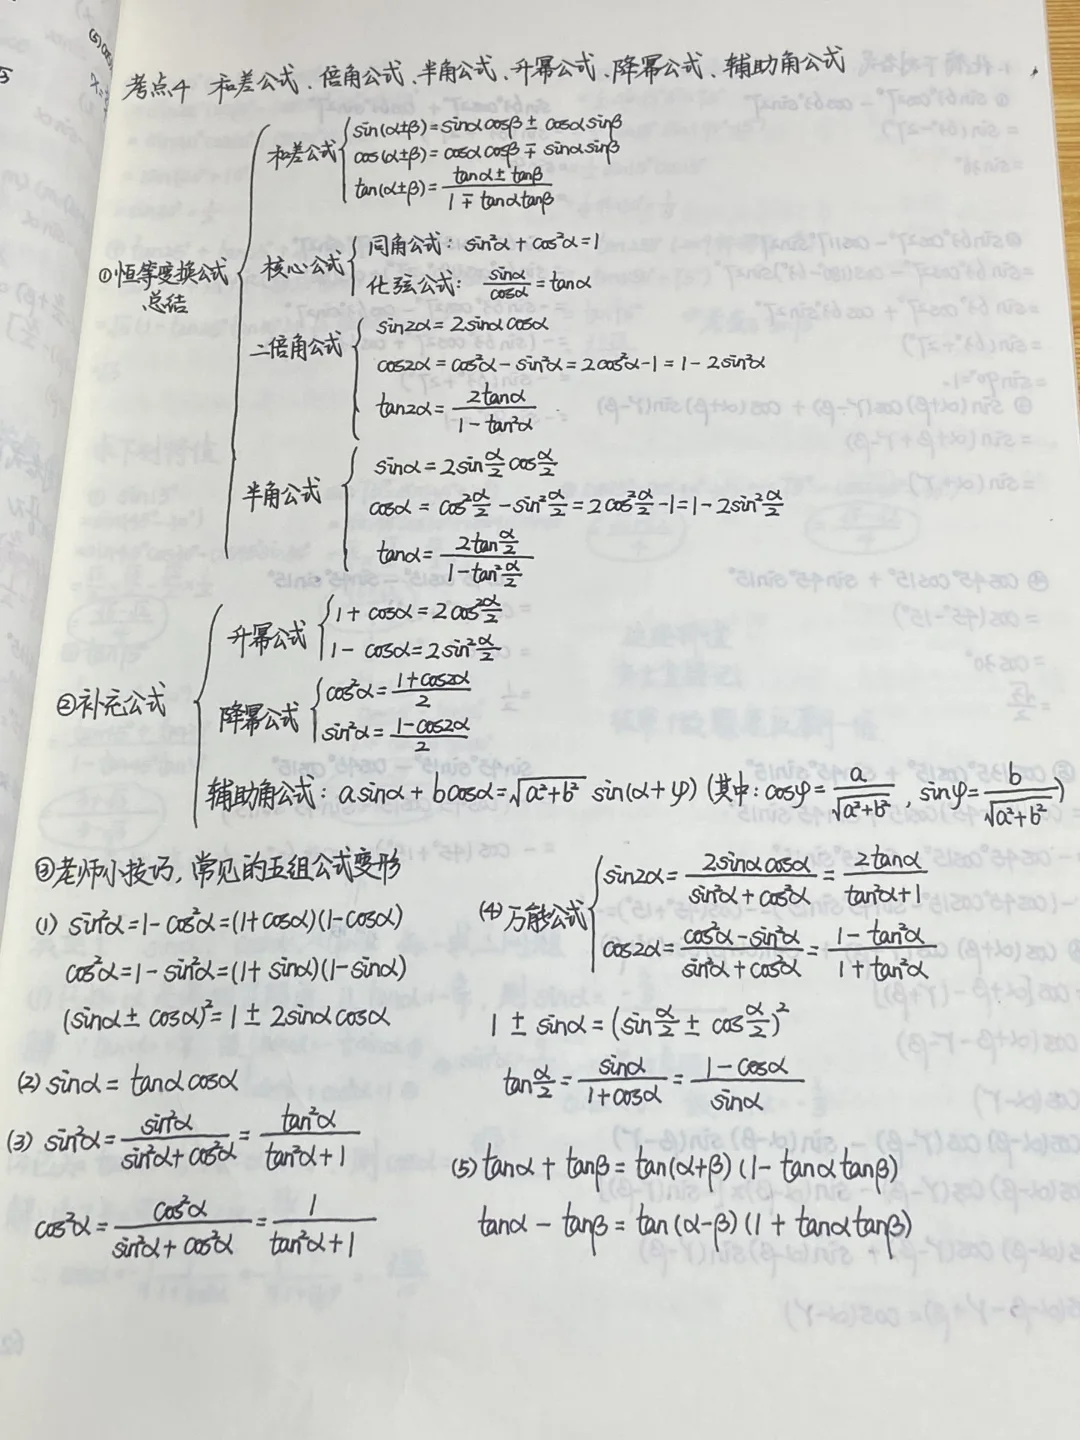 考点4 和差公式、倍角公式、半角公式、升幂公式、降幂公式、辅助角公式
①恒等变换公式总结
和差公式
sin(α±β)=sinαcosβ±cosαsinβ
cos(α±β)=cosαcosβ∓sinαsinβ
tan(α±β)=(tanα±tanβ)/(1∓tanαtanβ)
核心公式
同角公式：sin²α+cos²α=1
化弦公式：sinα/cosα=tanα
二倍角公式
sin2α=2sinαcosα
cos2α=cos²α-sin²α=2cos²α-1=1-2sin²α
tan2α=2tanα/(1-tan²α)
半角公式
sinα=2sin(α/2)cos(α/2)
cosα=cos²(α/2)-sin²(α/2)=2cos²(α/2)-1=1-2sin²(α/2)
tanα=2tan(α/2)/(1-tan²(α/2))
②补充公式
升幂公式
1+cosα=2cos²(α/2)
1-cosα=2sin²(α/2)
降幂公式
cos²α=(1+cos2α)/2
sin²α=(1-cos2α)/2
辅助角公式：asinα+bcosα=√(a²+b²) sin(α+φ) (其中：cosφ=a/√(a²+b²), sinφ=b/√(a²+b²))
③老师小技巧，常见的五组公式变形
(1) sin²α=1-cos²α=(1+cosα)(1-cosα)
cos²α=1-sin²α=(1+sinα)(1-sinα)
(sinα±cosα)²=1±2sinαcosα
(2) sinα=tanαcosα
(3) sin²α=sin²α/(sin²α+cos²α)=tan²α/(tan²α+1)
cos²α=cos²α/(sin²α+cos²α)=1/(tan²α+1)
(4) 万能公式
sin2α=2sinαcosα/(sin²α+cos²α)=2tanα/(tan²α+1)
cos2α=(cos²α-sin²α)/(sin²α+cos²α)=(1-tan²α)/(1+tan²α)
1±sinα=(sin(α/2)±cos(α/2))²
tan(α/2)=sinα/(1+cosα)=(1-cosα)/sinα
(5) tanα+tanβ=tan(α+β)(1-tanαtanβ)
tanα-tanβ=tan(α-β)(1+tanαtanβ)